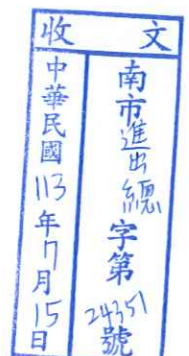 收文
南市進出總字第24351號
中華民國113年7月15日